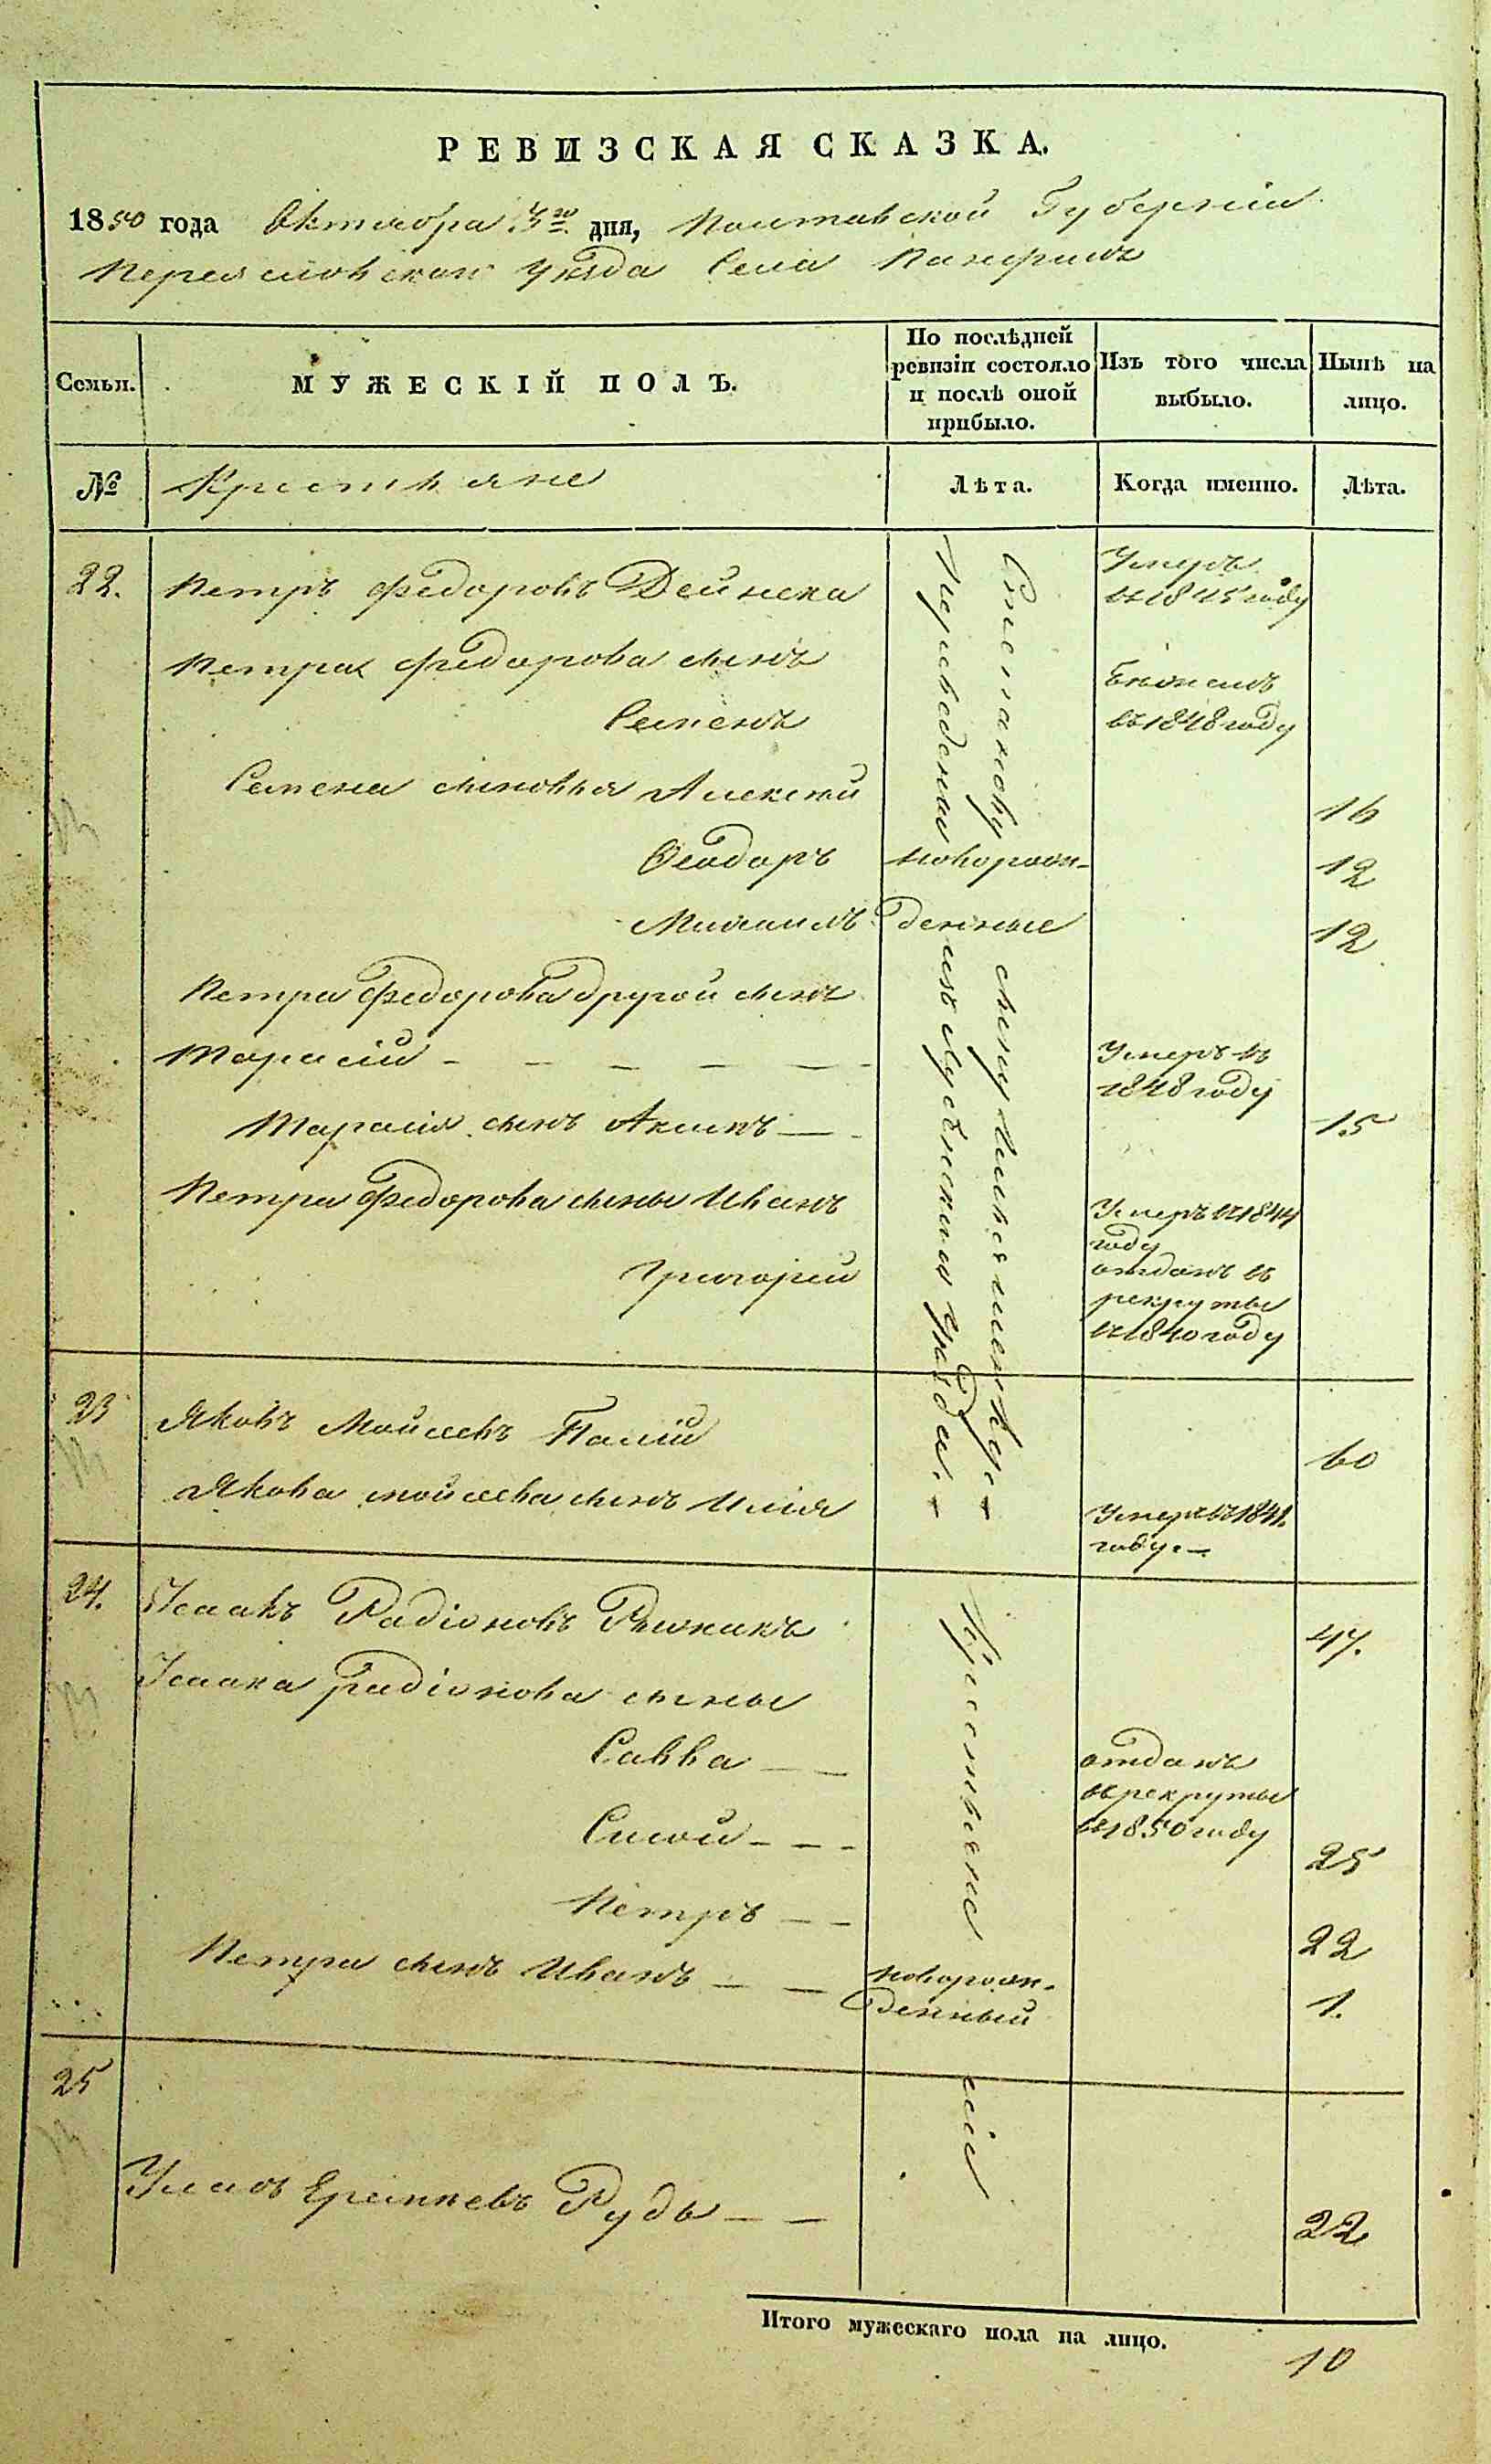 РЕВИЗСКАЯ СКАЗКА.
1850 года Октября дня, Полтавской Губерніи
Переяславскаго уѣзда Села Панфилъ
Семьи.
МУЖЕСКІЙ ПОЛЪ.
По послѣдней ревизіи состояло и послѣ оной прибыло.
Изъ того числа выбыло.
Нынѣ на лицо.
№
Крестьяне
Лѣта.
Когда именно.
Лѣта.
22. Петръ Федоровъ Дейнека Умеръ въ 1845 году
Петра Федорова сынъ
Семенъ Бѣжалъ въ 1848 году
Семена сыновья Алексѣй 16
Ѳеодоръ новорож- 12
Михаилъ денные 12
Петра Федорова другой сынъ
Тарасій - - - - - Умеръ въ 1848 году
Тарасія сынъ Акимъ — 15
Петра Федорова сыны Иванъ Умеръ въ 1844 году
Григорій отданъ въ рекруты въ 1840 году
переведены изъ Лубенскаго уѣзда.
Степанову сыну
23 Яковъ Мойсеевъ Палій 60
Якова Мойсеева сынъ Илія Умеръ въ 1841. году. —
24. Исаакъ Радіоновъ Рыжикъ 47.
Исаака Радіонова сыны
Савва — — отданъ въ рекруты въ 1850 году
Сисой - - - 25
Петръ — — 22
Петра сынъ Иванъ — — новорож-
денный 1.
25
Ермилъевъ Рудь — — 22
Итого мужескаго пола на лицо. 10